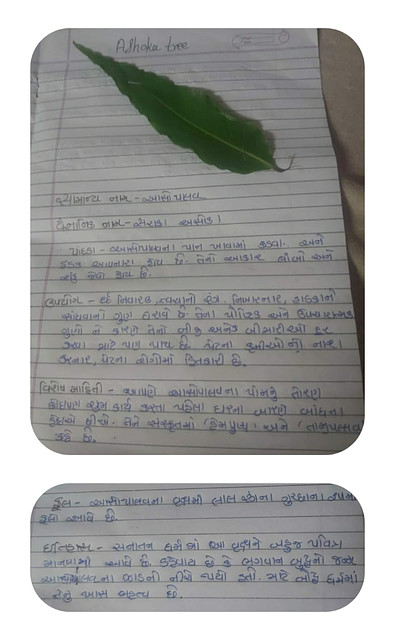 Ashoka tree
સામાન્ય નામ - આસોપાલવ
વૈજ્ઞાનિક નામ - સરાકા અસોકા
પાંદડા - આસોપાલવના પાન ખાવામાં કડવા અને
ઠંડક આપનારા હોય છે. તેનો આકાર લાંબો અને
હોય છે.
ઉપયોગ - દર્દ નિવારક, ત્વચાનો રંગ નિખારનાર, હાડકાંનો
સાંધવાનો ગુણ ધરાવે છે. તેના પૌષ્ટિક અને ઉપચારાત્મક
ગુણો ને કારણે તેનો બીજી અનેક બીમારીઓ દૂર
કરવા માટે પણ થાય છે. પેટના કૃમીઓ નો નાશ
કરનાર, પેટના રોગીમાં હિતકારી છે.
વિશેષ માહિતી - આપણે આસોપાલવના પાનનું તોરણ
કોઇપણ શુભ કાર્ય કરતા પહેલા ઘરના બારણે બાંધતા
હોઇએ છીએ. તેને સંસ્કૃતમાં 'હેમપુષ્પ' અને 'તામ્રપલ્લવ
કહે છે.
ફૂલ - આસોપાલવના વૃક્ષમાં લાલ રંગના ગુચ્છાના
ફૂલો આવે છે.
ઈતિહાસ - સનાતન ધર્મમાં આ વૃક્ષને બહુજ પવિત્ર
માનવામાં આવે છે. કહેવાય છે કે ભગવાન બુદ્ધનો જન્મ
આસોપાલવના ઝાડની નીચે થયો હતો. માટે બૌદ્ધ ધર્મમાં
તેનું ખાસ મહત્વ છે.